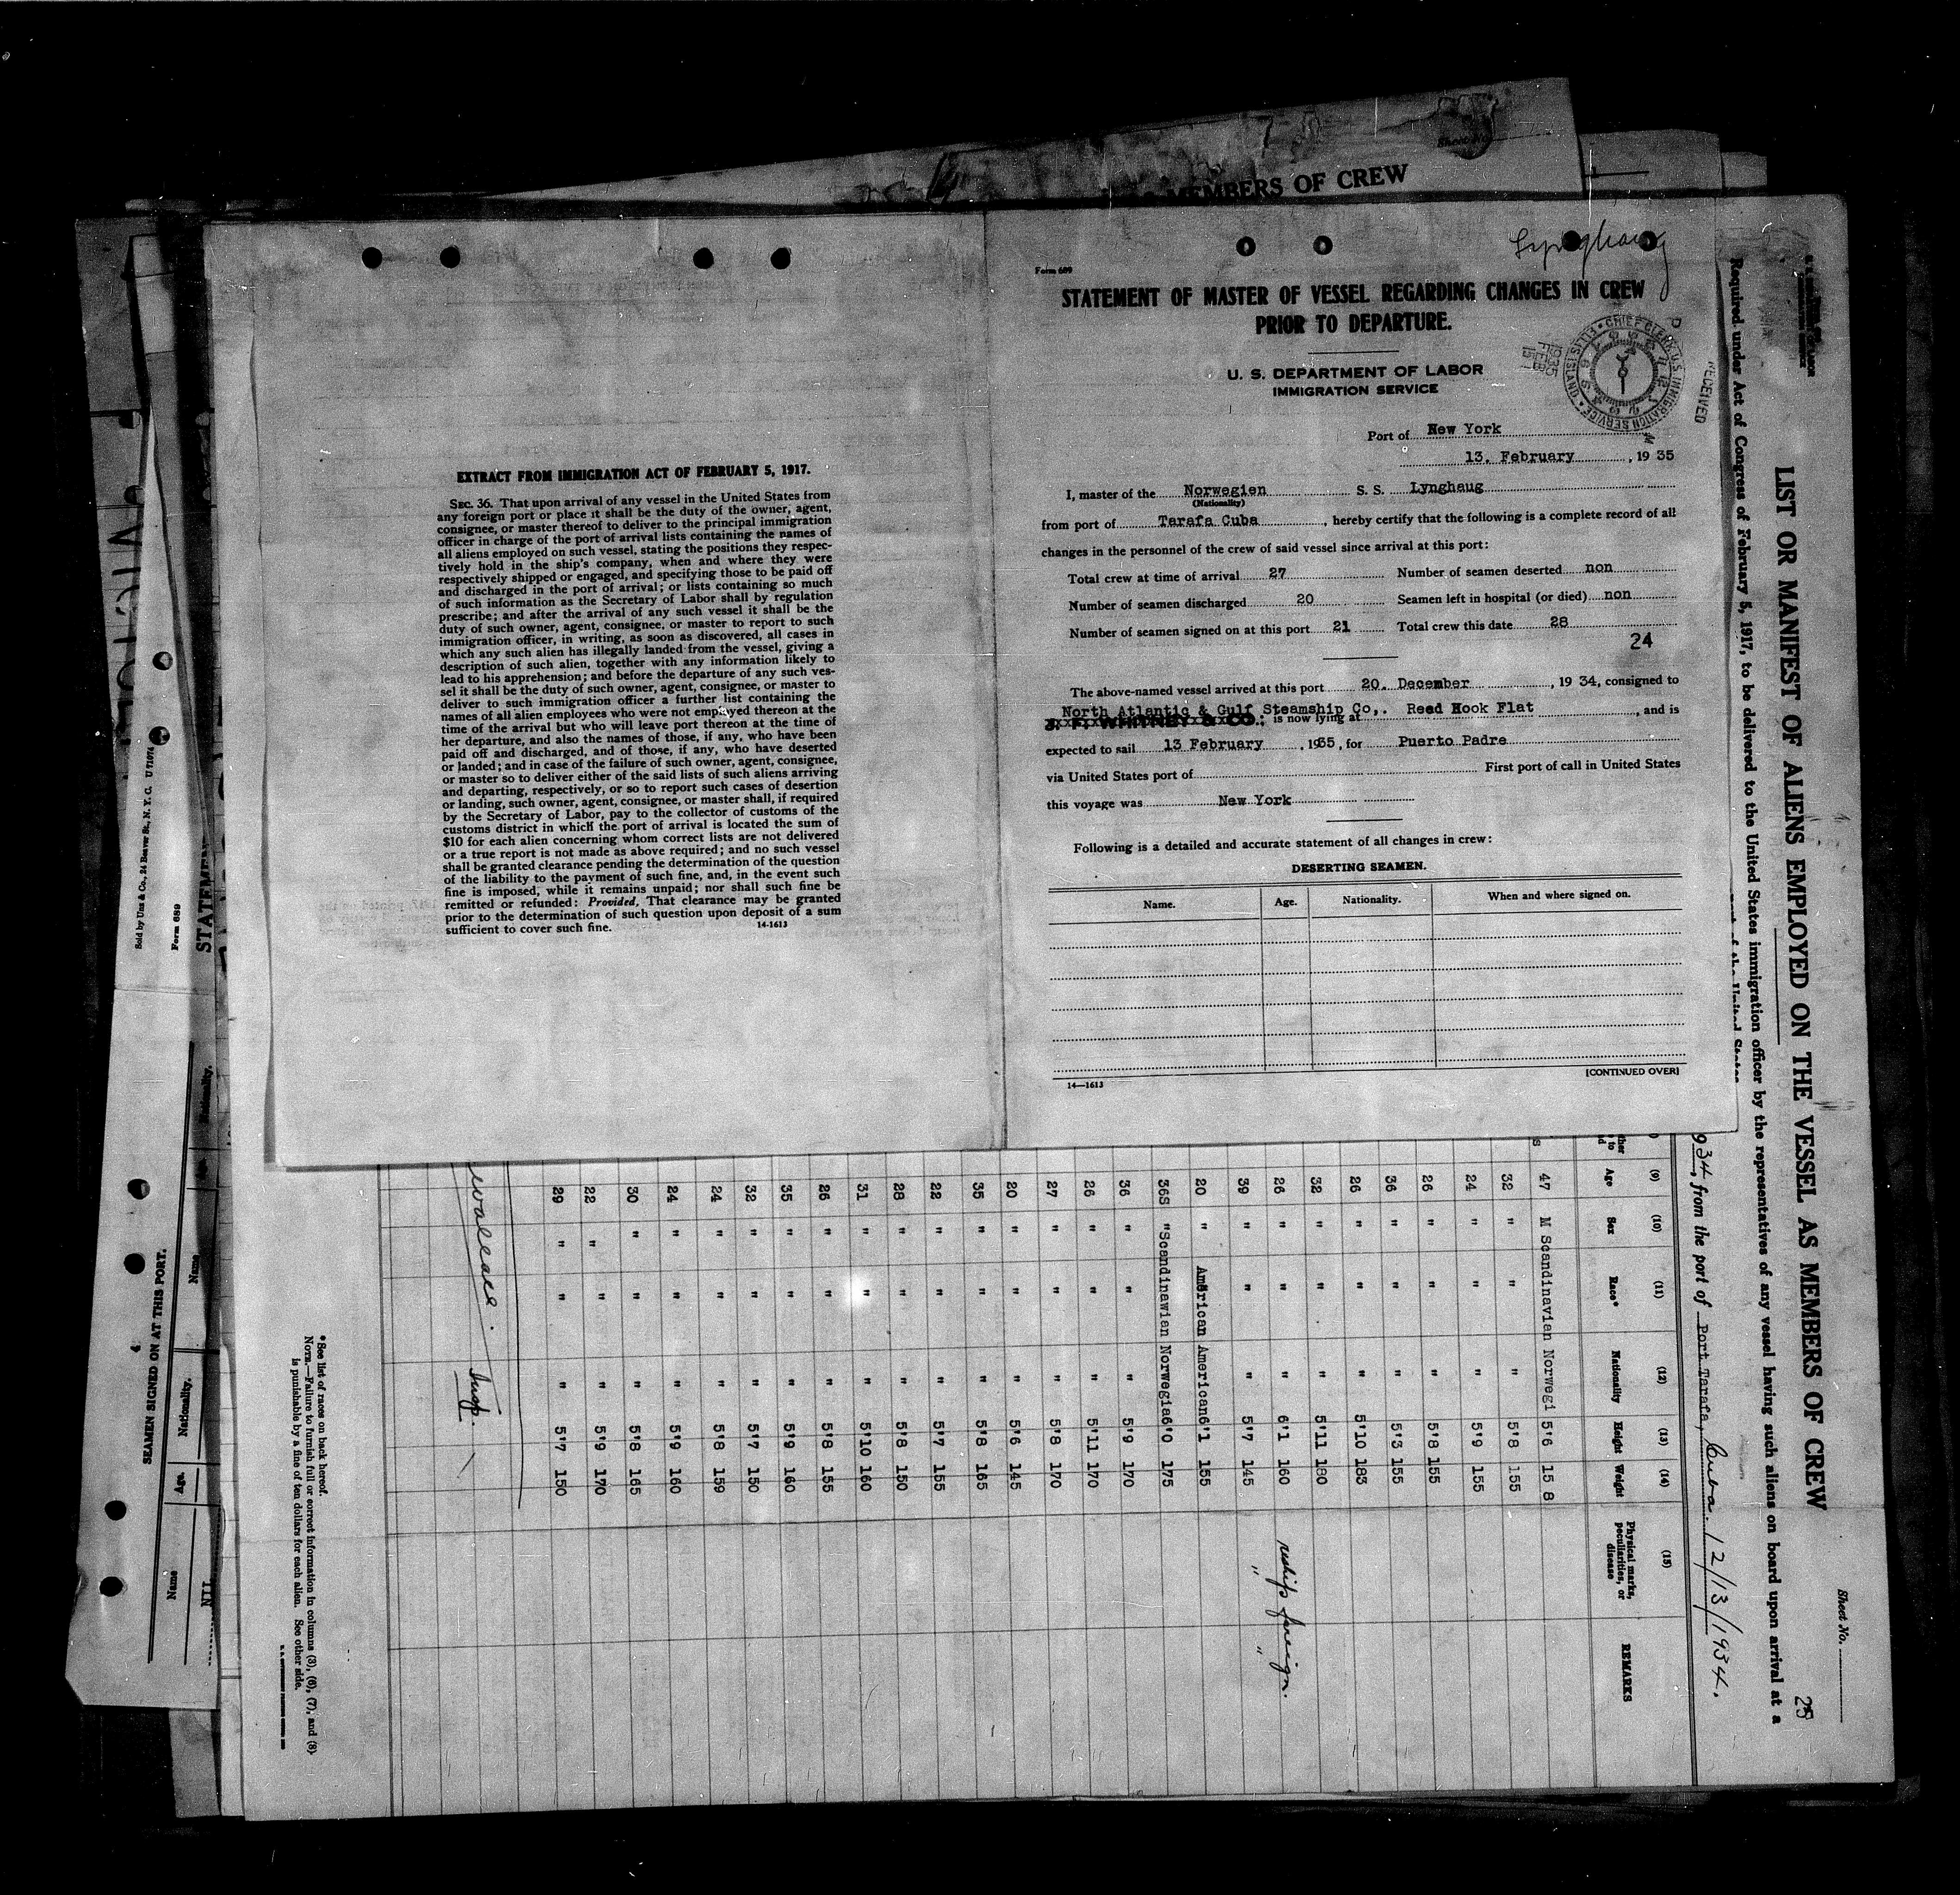 MEMBERS OF CREW
Lynghaug
Form 689
STATEMENT OF MASTER OF VESSEL REGARDING CHANGES IN CREW
PRIOR TO DEPARTURE.
U. S. DEPARTMENT OF LABOR
IMMIGRATION SERVICE
CHIEF CLERK U.S. IMMIGRATION SERVICE • ELLIS ISLAND •
1935 FEB 15
RECEIVED
Port of New York
13. February, 19 35
I, master of the Norwegien S. S. Lynghaug
(Nationality)
from port of Tarafa Cuba, hereby certify that the following is a complete record of all
changes in the personnel of the crew of said vessel since arrival at this port:
Total crew at time of arrival 27 Number of seamen deserted non
Number of seamen discharged 20 Seamen left in hospital (or died) non
Number of seamen signed on at this port 21 Total crew this date 28
24
The above-named vessel arrived at this port 20. December, 19 34, consigned to
North Atlantic & Gulf Steamship Co,. Reed Hook Flat
J. F. WHITNEY & CO.; is now lying at, and is
expected to sail 13 February, 1935, for Puerto Padre
via United States port of First port of call in United States
this voyage was New York
Following is a detailed and accurate statement of all changes in crew:
DESERTING SEAMEN.
Name. Age. Nationality. When and where signed on.
14—1613 [CONTINUED OVER]
EXTRACT FROM IMMIGRATION ACT OF FEBRUARY 5, 1917.
SEC. 36. That upon arrival of any vessel in the United States from
any foreign port or place it shall be the duty of the owner, agent,
consignee, or master thereof to deliver to the principal immigration
officer in charge of the port of arrival lists containing the names of
all aliens employed on such vessel, stating the positions they respec-
tively hold in the ship's company, when and where they were
respectively shipped or engaged, and specifying those to be paid off
and discharged in the port of arrival; or lists containing so much
of such information as the Secretary of Labor shall by regulation
prescribe; and after the arrival of any such vessel it shall be the
duty of such owner, agent, consignee, or master to report to such
immigration officer, in writing, as soon as discovered, all cases in
which any such alien has illegally landed from the vessel, giving a
description of such alien, together with any information likely to
lead to his apprehension; and before the departure of any such ves-
sel it shall be the duty of such owner, agent, consignee, or master to
deliver to such immigration officer a further list containing the
names of all alien employees who were not employed thereon at the
time of the arrival but who will leave port thereon at the time of
her departure, and also the names of those, if any, who have been
paid off and discharged, and of those, if any, who have deserted
or landed; and in case of the failure of such owner, agent, consignee,
or master so to deliver either of the said lists of such aliens arriving
and departing, respectively, or so to report such cases of desertion
or landing, such owner, agent, consignee, or master shall, if required
by the Secretary of Labor, pay to the collector of customs of the
customs district in which the port of arrival is located the sum of
$10 for each alien concerning whom correct lists are not delivered
or a true report is not made as above required; and no such vessel
shall be granted clearance pending the determination of the question
of the liability to the payment of such fine, and, in the event such
fine is imposed, while it remains unpaid; nor shall such fine be
remitted or refunded: Provided, That clearance may be granted
prior to the determination of such question upon deposit of a sum
sufficient to cover such fine.
14-1613
Sheet No.
25
LIST OR MANIFEST OF ALIENS EMPLOYED ON THE VESSEL AS MEMBERS OF CREW
Required under Act of Congress of February 5, 1917, to be delivered to the United States immigration officer by the representatives of any vessel having such aliens on board upon arrival at a
934, from the port of Port Tarafa, Cuba. 12/13/1934.
(9) (10) (11) (12) (13) (14) (15)
Age Sex Race* Nationality Height Weight Physical marks, peculiarities, or disease REMARKS
47 M Scandinavian Norwegi 5'6 15 8
32 " " " 5'8 155
24 " " " 5'9 155
26 " " " 5'8 155
36 " " " 5'3 155
26 " " " 5'10 183
32 " " " 5'11 180
26 " " " 6'1 160 reships foreign.
39 " " " 5'7 145 " "
20 " American American 6'1 155
36S " Scandinawian Norwegia 6'0 175
36 " " " 5'9 170
26 " " " 5'11 170
27 " " " 5'8 170
20 " " " 5'6 145
35 " " " 5'8 165
22 " " " 5'7 155
28 " " " 5'8 150
31 " " " 5'10 160
26 " " " 5'8 155
35 " " " 5'9 160
32 " " " 5'7 150
24 " " " 5'8 159
24 " " " 5'9 160
30 " " " 5'8 165
22 " " " 5'9 170
29 " " " 5'7 150
Insp.
*See list of races on back hereof.
NOTE.—Failure to furnish full or correct information in columns (3), (6), (7), and (8)
is punishable by a fine of ten dollars for each alien. See other side.
STATEME
Form 689
Sold by Unz & Co., 24 Beaver St., N. Y. C. U 71074
Nationality.
Name
SEAMEN SIGNED ON AT THIS PORT.
4
Name Nationality. Age.
Name
NIL